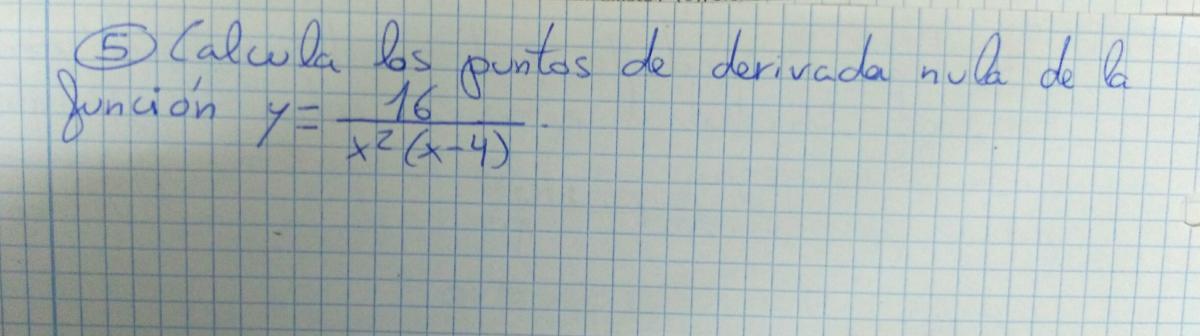 ⑤ Calcula los puntos de derivada nula de la
función y = 16 / x²(x-4) .